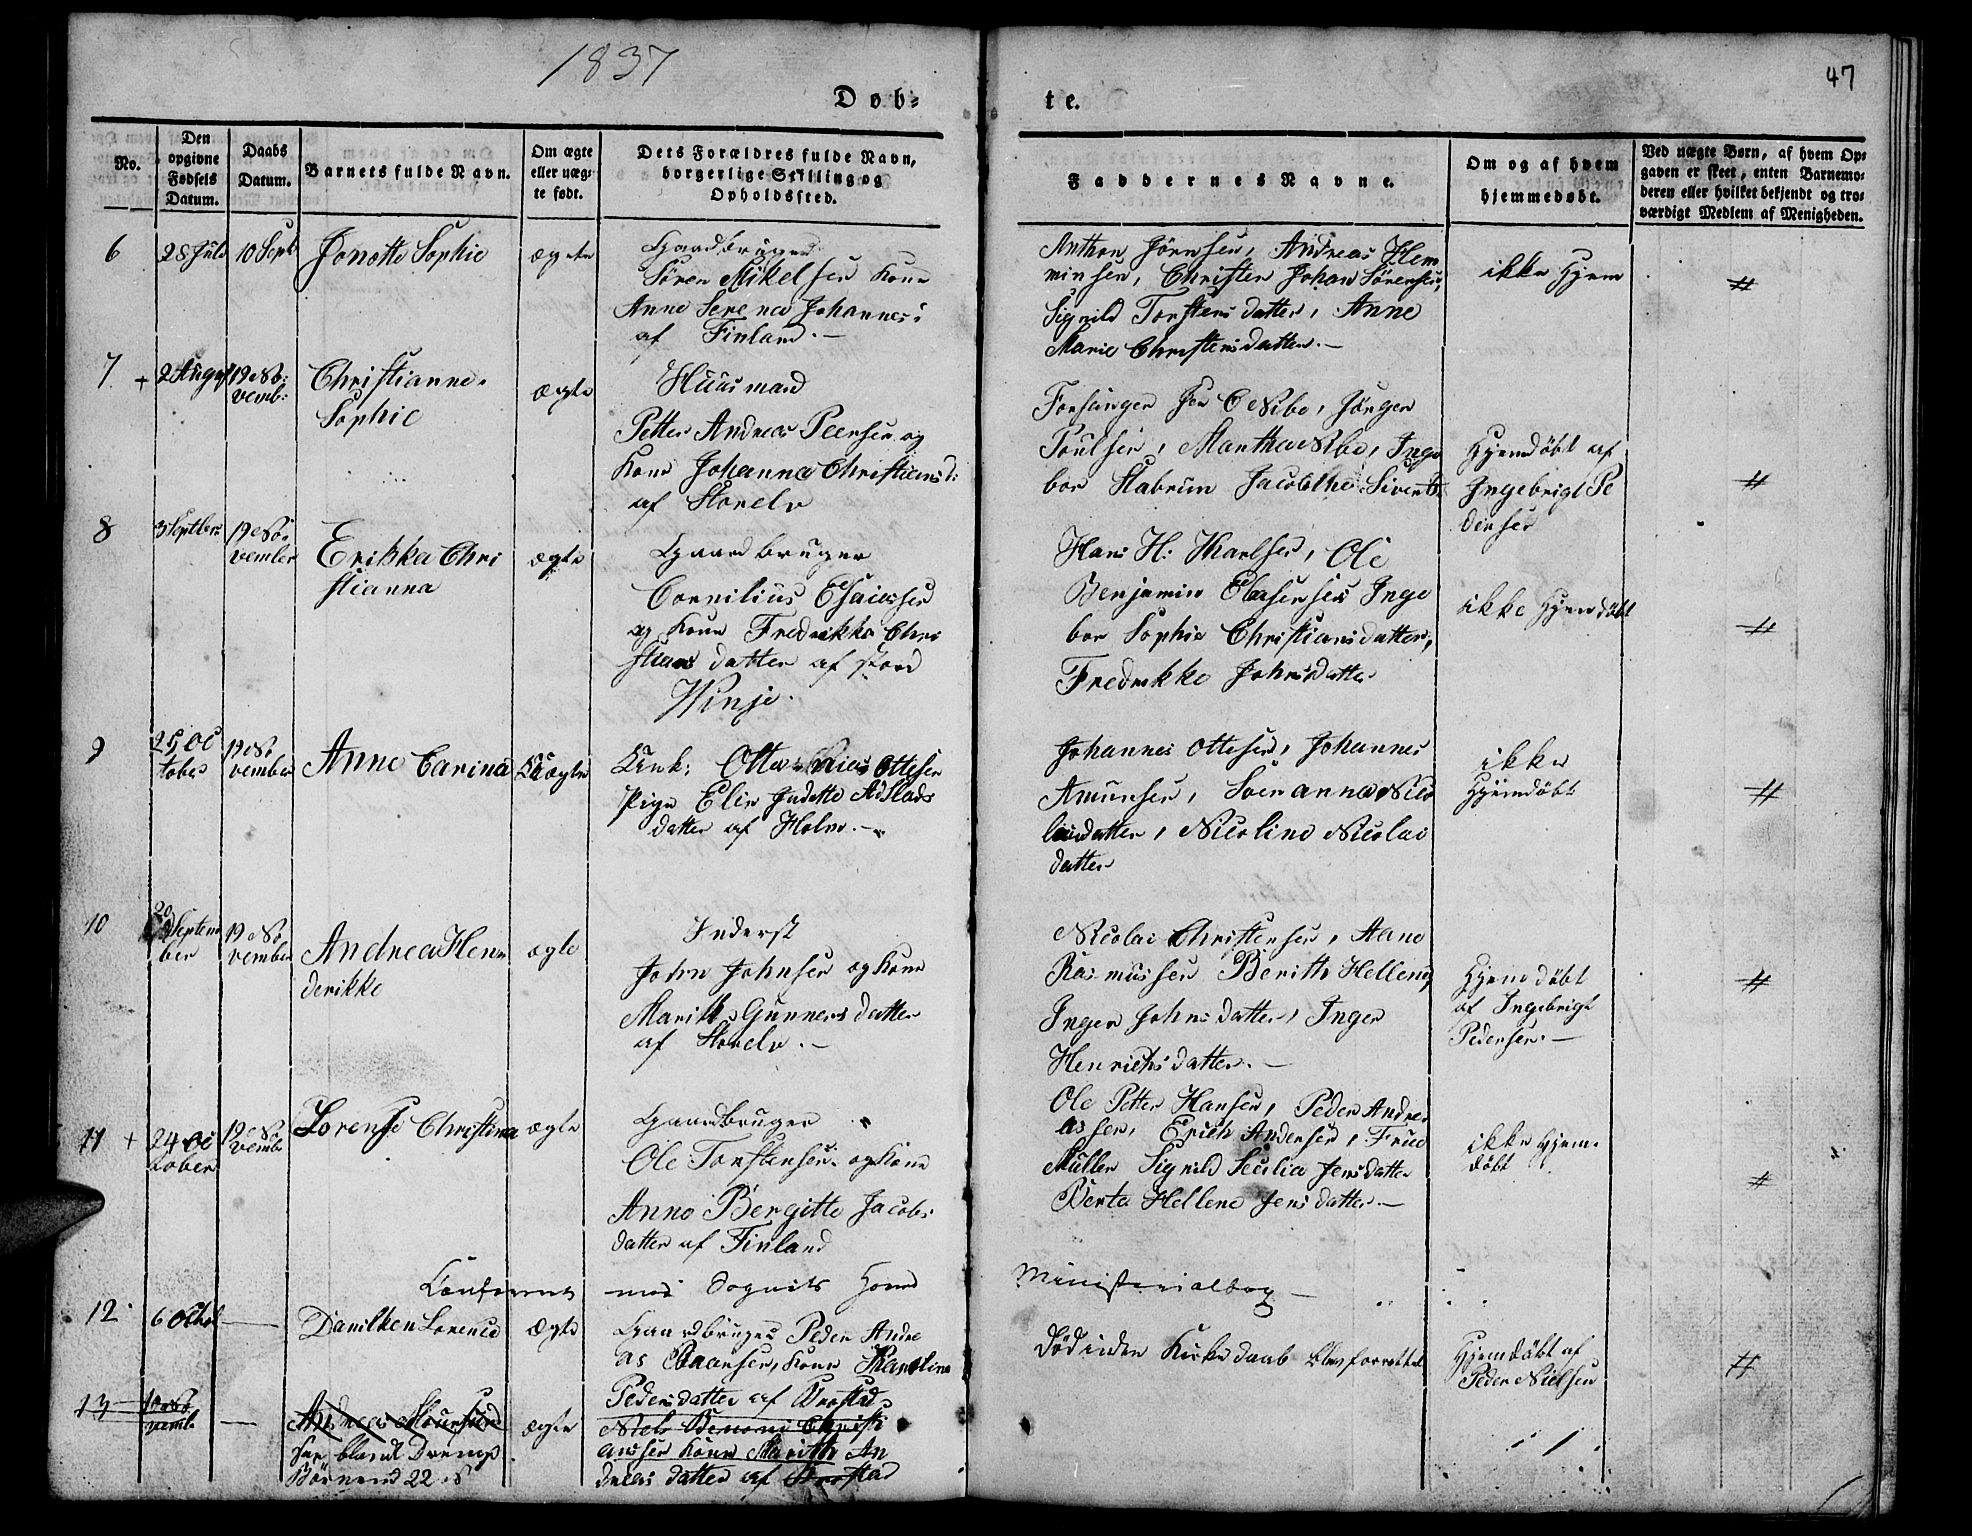 1837
47
Døb-
te.
No.
Den opgivne Fødsels Datum.
Daabs Datum.
Barnets fulde Navn.
Om ægte eller uæg-
te født.
Dets Forældres fulde Navn,
borgerlige Stilling og
Opholdssted.
Faddernes Navne.
Om og af hvem
hjemmedøbt.
Ved uægte Børn, af hvem Op-
gaven er skeet, enten Barnemo-
deren eller hvilket bekjendt og tro-
værdigt Medlem af Menigheden.
6
28 Juli
10 Sept
Jonette Sophie
ægte
Gaardbruger
Sören Mikelsen Kone
Anne Serenea Johannes:
af Finland.-
Anthon Jörnsen, Andreas Hem
minsen, Christen Johan Sörensen,
Signild Torstensdatter, Anne
Marie Christensdatter.-
ikke Hjem
#
7
+
2 August
19 No-
vemb:
Christianne
Sophie
ægte
Huusmand
Petter Andreas Peersen og
Kone Johanna Christiansd:
af Storelv
Forsanger Jörgen
Poulsen, Martha Inge
bor Jacobthe Siverts
Hjemdöbt af
Ingebrigt Pe
dersen
#
8
3 Septber
19 No-
vember
Erikka Chri
stianna
ægte
Gaardbruger
Cornilius Esaiassen
og Kone Fredrikke Chri
stians datter af Stord
Winje.
Hans H: Karlsen, Ole
Benjamin Inge
bor Sophie Christiansdatter,
Fredrikke Johnsdatter
ikke Hjemdöbt
#
9
25 Oc
tober
19 No
vember
Anne Carina
Uægte
Unk: Ottesen
Pige Elen Judette
datter af Holm.-
Johannes Ottesen, Johannes
Amunsen, Soeranna Nico
laidatter, Nicoline Nicolai
datter
ikke
Hjemdöbt
#
10
20 Septem
ber
19 No
vember
Andrea Hen
derikke
ægte
Inderst
John Johnsen og Kone
Marith Gunnersdatter
af Storelv.-
Nicolai Christensen, Aane
Rasmussen Berith Hellena,
Inger Johnsdatter, Inger
Henrichsdatter.-
Hjemdöbt
af Ingebrigt
Pedersen.-
#
11
+
24 Oc
tober
19 No
vemb
Lorense Christina
ægte
Gaardbruger
Ole Torstensen og Kone
Anne Bergitte Jacobs
datter af Finland
Ole Petter Hansen, Peder Andre
assen, Erich Andersen, Frue
Müller Signild Secilia Jensdatter
Berta Hellene Jensdatter.-
ikke Hjem-
döbt
#
Conferered med Sognets Hoved
Ministerialbog
12
6 Octob
Danilken Lorence
Ægte
Gaardbruger Peder Andre
as Kone Karoline
Pedersdatter af
Död uden Kirkedaab blev forrettet
Hjemdöbt af
Peder Nielsen
#
13
10 No
vemb
Andreas
ægte
Niels Benoni Christi
ansen Kone Marith An
dreasdatter af
blandt Drenge
Börnene 22